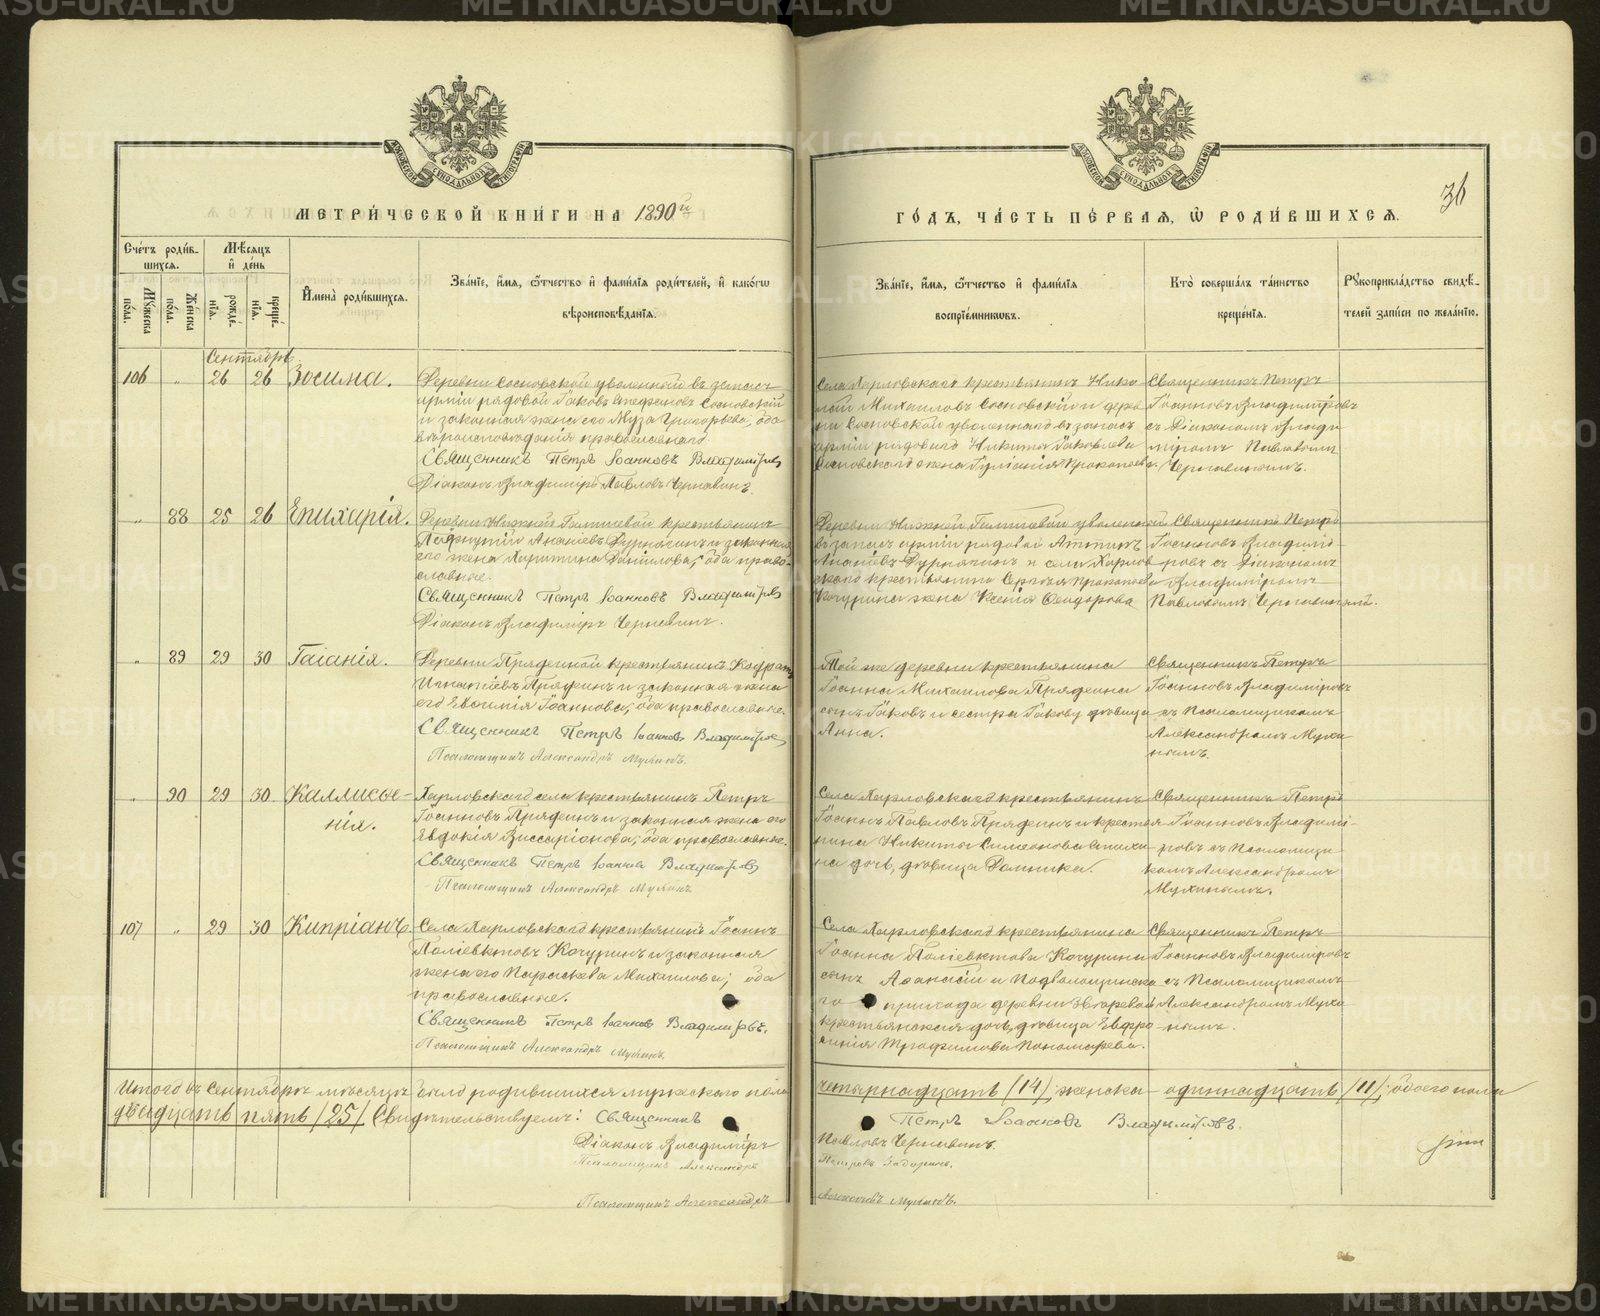 МЕТРИ́ЧЕСКОЙ КНИ́ГИ НА 1890й
ГО́ДЪ, ЧА́СТЬ ПЕ́РВАЯ, Ѽ РОДИ́ВШИХСЯ.
36
Сче́тъ роди́вшихся.
Мѣ́сяцъ и҆ де́нь
Мꙋ́жеска по́ла.
Же́нска по́ла.
рожде́нїя.
креще́нїя.
И҆мена̀ роди́вшихся.
Зва́нїе, и҆́мя, ѻ҆́тчество и҆ фами́лїя роди́телей, и҆ како́гѡ
вѣроисповѣ́данїя.
Зва́нїе, и҆́мя, ѻ҆́тчество и҆ фами́лїя
воспрїе́мникѡвъ.
Кто̀ соверша́лъ та́инство
креще́нїя.
Рꙋкоприкла́дство свидѣ́-
телей за́писи по жела́нїю.
Сентябрь.
106 „ 26 26 Зосима.
Деревни Сосновской уволенный въ запасъ
арміи рядовой Іаковъ Стефановъ Сосновскій
и законная жена его Муза Григорьева, оба
вѣроисповѣданія православнаго.
Священникъ Петръ Іоанновъ Владиміровъ
Діаконъ Владиміръ Павловъ Чернавинъ.
Села Харловскаго крестьянинъ Нико-
лай Михаиловъ Сосновскій и дерев-
ни Сосновской уволеннаго въ запасъ
арміи рядоваго Никиты Іаковлева
Сосновскаго жена Іуліанія Прокопьева.
Священникъ Петръ
Іоанновъ Владиміровъ
съ Діакономъ Влади-
міромъ Павловымъ
Чернавинымъ.
„ 88 25 26 Епихарія.
крестьянинъ
Ананіевъ и законная
его жена Харитина Данилова, оба право-
славные.
Священникъ Петръ Іоанновъ Владиміровъ
Діаконъ Владиміръ Чернавинъ.
Деревни Нижней уволенный
въ запасъ арміи рядовой
Ананіевъ и села Харлов-
скаго крестьянина Сергѣя Прокопьева
Кочурина жена Ксенія Ѳеодорова
Священникъ Петръ
Іоанновъ Владимі-
ровъ съ Діакономъ
Владиміромъ
Павловымъ Чернавинымъ.
„ 89 29 30 Гаіанія.
Деревни Прядеиной крестьянинъ Кодратъ
Игнатіевъ Прядеинъ и законная жена
его Евѳимія Іоаннова, оба православные.
Священникъ Петръ Іоанновъ Владиміровъ
Псаломщикъ Александръ Мухинъ.
Той же деревни крестьянина
Іоанна Михаилова Прядеина
сынъ Іаковъ и сестра Іакову дѣвица
Анна.
Священникъ Петръ
Іоанновъ Владиміровъ
съ Псаломщикомъ
Александромъ Мухи-
нымъ.
„ 90 29 30 Каллисѳе-
нія.
Харловскаго села крестьянинъ Петръ
Іоанновъ Прядеинъ и законная жена его
Евдокія Виссаріонова, оба православные.
Священникъ Петръ Іоанновъ Владиміровъ
Псаломщикъ Александръ Мухинъ
Села Харловскаго крестьянинъ
Іоаннъ Павловъ Прядеинъ и кресть-
янина Никиты Симеонова
дочь, дѣвица Домника.
Священникъ Петръ
Іоанновъ Владимі-
ровъ съ Псаломщи-
комъ Александромъ
Мухинымъ.
107 „ 29 30 Кипріанъ
Села Харловскаго крестьянинъ Іоаннъ
Поліевктовъ Кочуринъ и законная
жена его Параскева Михаилова; оба
православные.
Священникъ Петръ Іоанновъ Владиміровъ.
Псаломщикъ Александръ Мухинъ.
Села Харловскаго крестьянина
Іоанна Поліевктова Кочурина
сынъ Аѳанасій и Подволошинска-
го прихода деревни
крестьянская дочь, дѣвица Евфро-
синія Трофимова Пономарева.
Священникъ Петръ
Іоанновъ Владиміровъ
съ Псаломщикомъ
Александромъ Мухи-
нымъ.
Итого въ Сентябрѣ мѣсяцѣ было родившихся мужеска пола четырнадцать /14/; женска одиннадцать /11/; обоего пола
двадцать пять /25/. Свидѣтельствуемъ: Священникъ Петръ Іоанновъ Владиміровъ.
Діаконъ Владиміръ Павловъ Чернавинъ.
Псаломщикъ Александръ
Псаломщикъ Александръ Мухинъ.
METRIKI.GASO-URAL.RU